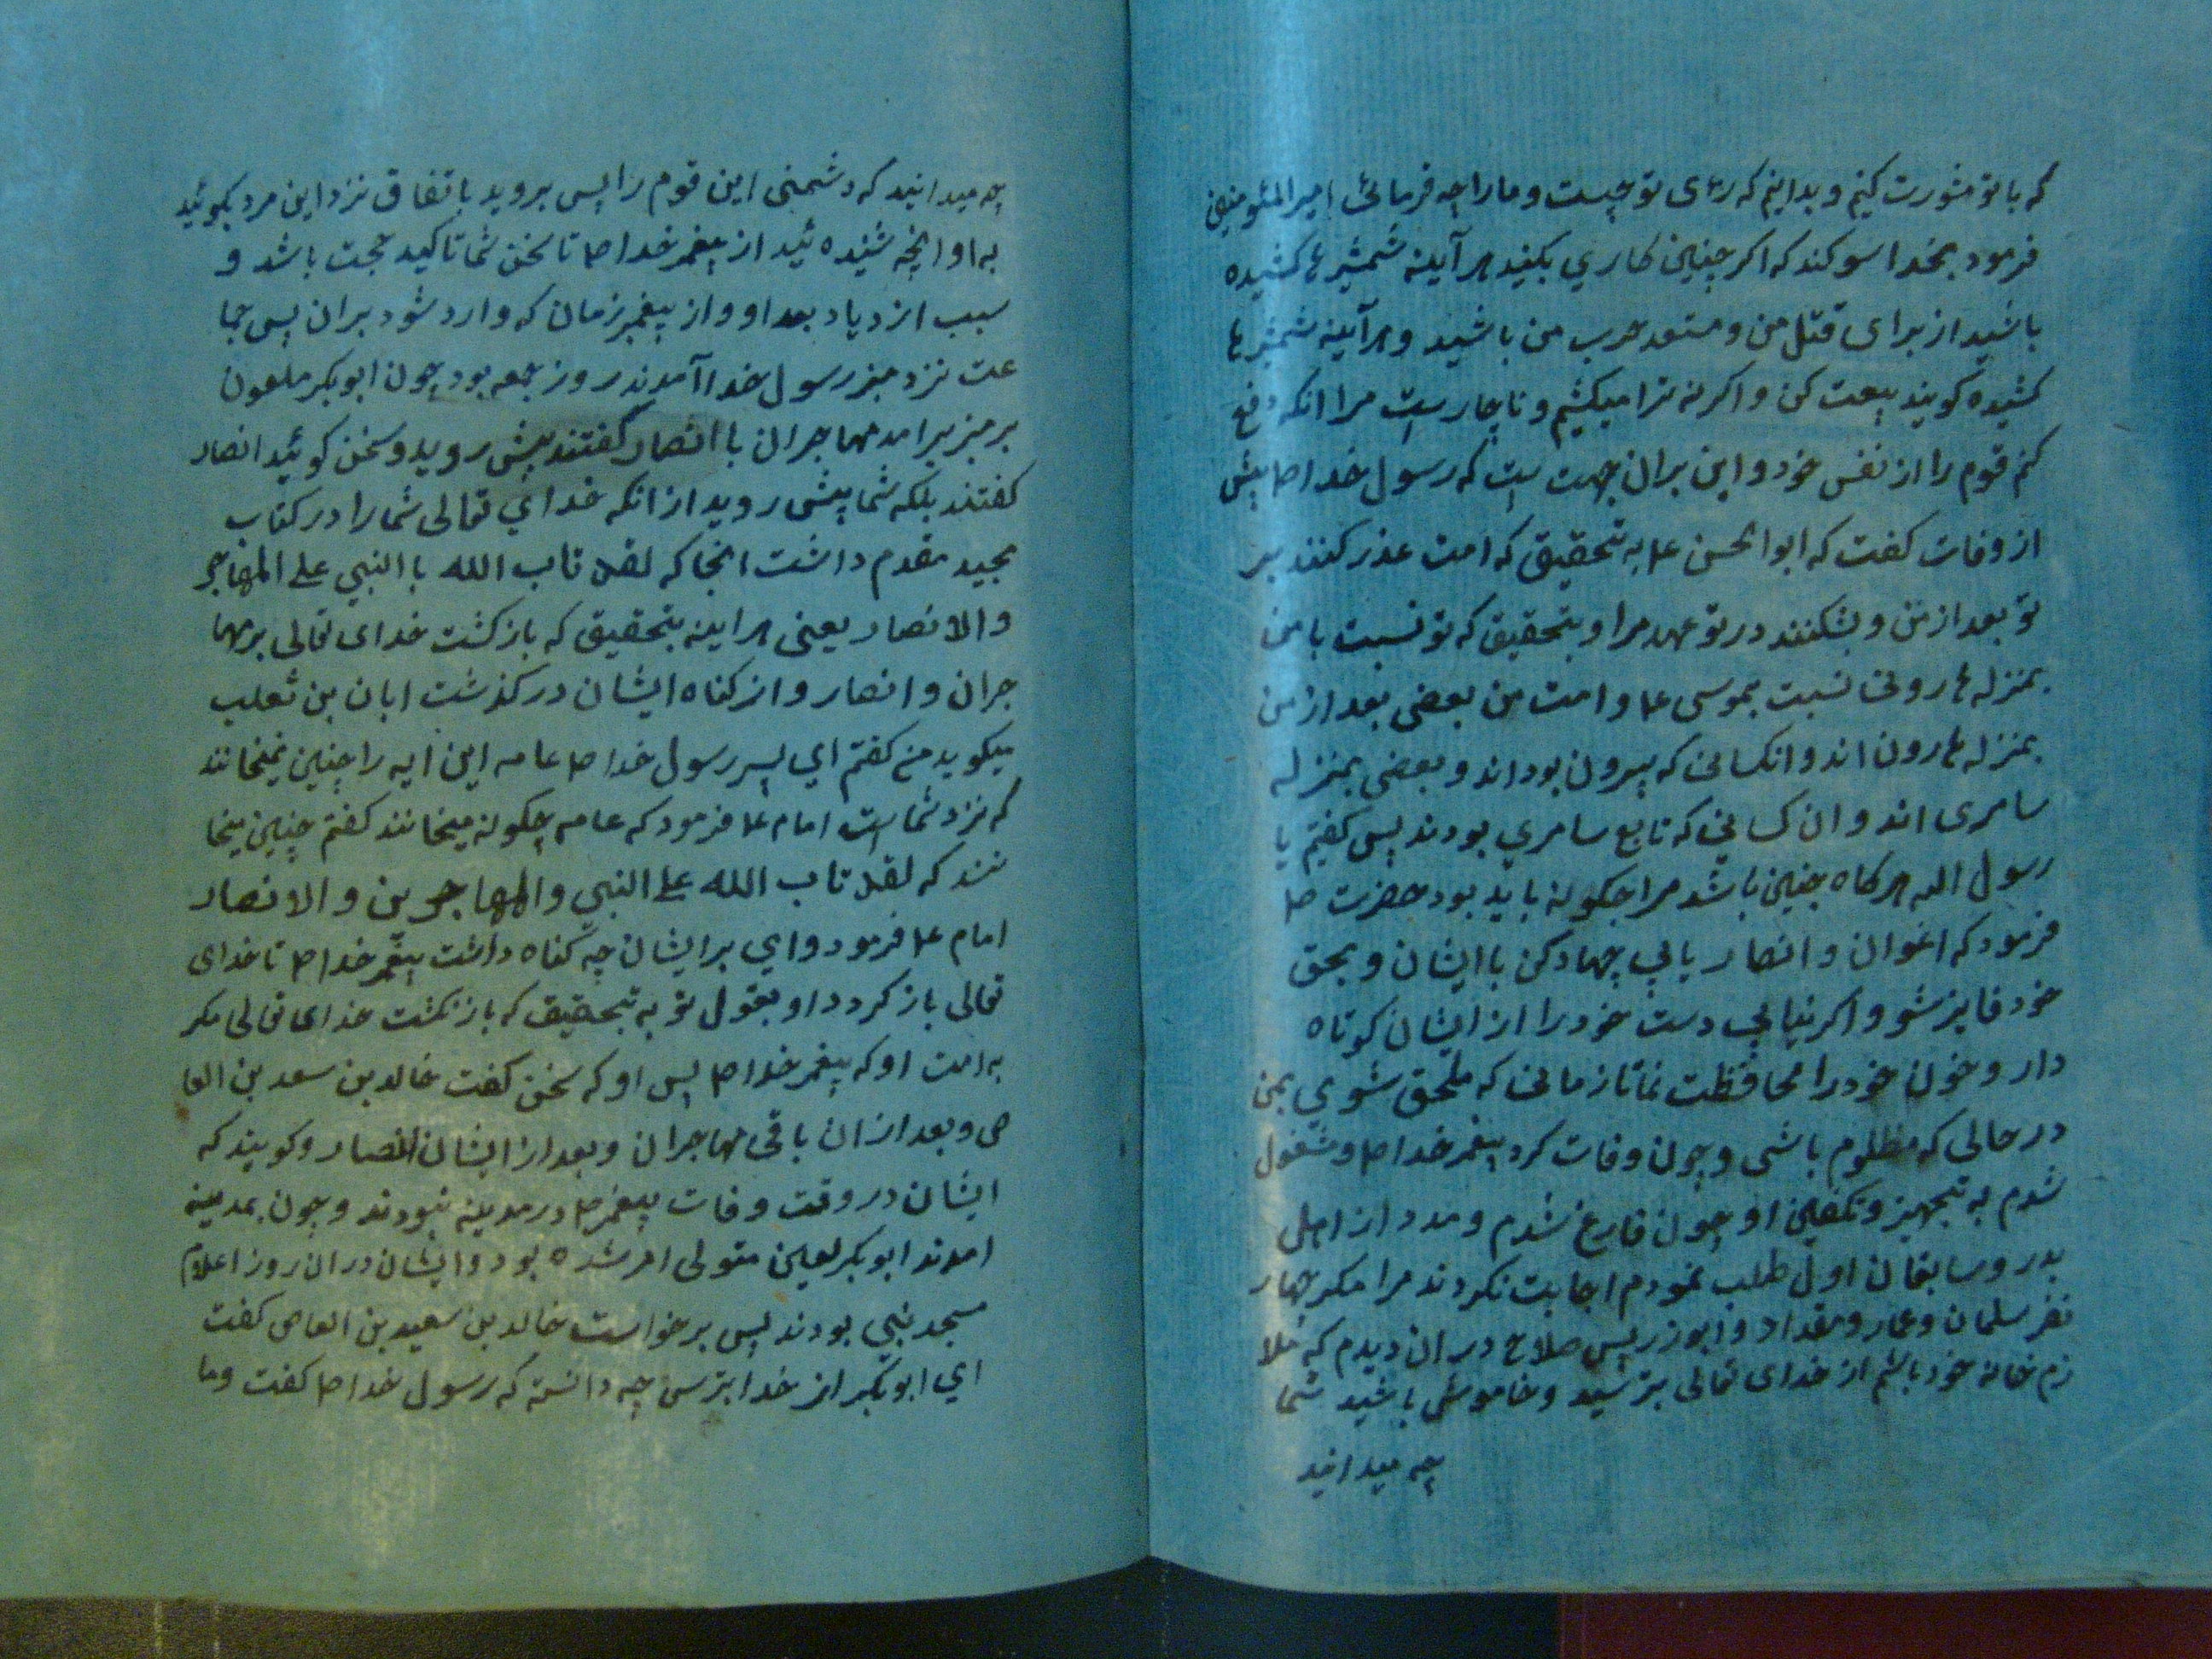 که باتو مشورت کنیم و بدانیم که رءی تو چیست و مارا چه فرمائی امیر المئومنین
فرمود بخدا سوکند که اکر چنین کاری بکنید هر آینه شمشیرها کشیده
باشید از برای قتل من و مستعد حرب من باشید و هر آینه شمشیرها
کشیده کویند بیعت کن و اکرنه ترا میکشیم و ناچار ست مرا انکه دفع
کنم قوم را از نفس خود و این بران جهت ست که رسول خدا صلا پیش
از وفات کفت که ابوالحسن علا به تحقیق که امت عذر کنند بر
تو بعد از من و بشکنند در تو عهد مرا و بتحقیق که تو نسبت با من
بمنزله هارونی نسبت بموسی علا و امت من بعضی بعد از من
بمنزله هارون اند و انکسانی که پیرون بوداند و بعضی بمنزله
سامری اند و ان کسانی که تابع سامری بودند پس کفتم یا
رسول الله هرکاه چنین باشد مرا چکونه باید بود حضرت صلا
فرمود که اعوان و انصار یابی جهاد کن با ایشان و بحق
خود فایز شو و اکر نیابی دست خود را از ایشان کوتاه
دار و خون خود را محافظت نما تا زمانی که ملحق شوی بمن
در حالی که مظلوم باشی و چون وفات کرد پیغمر خدا صلا و مشغول
شدم به تجهیز و تکفین او چون فارغ شدم و مدد از اهل
بدر و سابقان اول طلب نمودم اجابت نکردند مرا مکر چهار
نفر سلمان و عمار و مقداد و ابوذر پس صلاح در ان دیدم که ملا
زم خانه خود باشم از خدای تعالی بترسید و خاموش باشید شما
چه میدانید
چه میدانید که دشمنی این قوم را پس بروید باتفاق نزد این مرد بکوئید
به او انچه شنیده ئید از پیغمر خدا صلا تا سخن شما تاکید حجت باشد و
سبب ازدیاد بعد او و از پیغمبر زمان که وارد شود بران پس جما
عت نزد منبر رسول خدا آمدند روز جمعه بود چون ابوبکر ملعون
بر منبر برامد مهاجران با انصار کفتند پیش روید و سخن کوئید انصار
کفتند بلکه شما پیش روید از انکه خدای تعالی شما را در کتاب
مجید مقدم داشت انجا که لقد تاب الله با النبی علی المهاجر
والانصار یعنی هراینه بتحقیق که بازکشت خدای تعالی بر مها
جران و انصار و از کناه ایشان درکذشت ابان بن ثعلب
میکوید من کفتم ای پسر رسول خدا صلا عامه این ایه را چنین نمیخانند
که نزد شما است امام علا فرمود که عامه چکونه میخانند کفتم چنین میخا
نند که لقد تاب الله علی النبی والمهاجرین والانصار
امام علا فرمود وای بر ایشان چه کناه داشت پیغمر خدا صلا تا خدای
تعالی بازکردد او بقول تو به تحقیق که بازکشت خدای تعالی مکر
به امت او که پیغمر خدا صلا پس او که سخن کفت خالد بن سعد بن العا
ص و بعد ازان باقی مهاجران و بعد از ایشان انصار و کویند که
ایشان در وقت وفات پیغمر صلا در مدینه نبودند و چون بمدینه
امدند ابوبکر لعین متولی امر شده بود و ایشان دران روز اعلام
مسجد نبی بودند پس برخواست خالد بن سعید بن العاص کفت
ای ابوبکر از خدا بترس چه دانسته که رسول خدا صلا کفت و ما